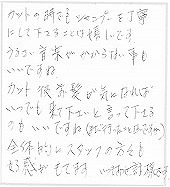 カットの時でもシャンプーを丁寧
にして下さることは嬉しです
うるさい音楽がかからない事も
いいですね
カット後 前髪が気になれば
いつでも来て下さいと言って下さる
のもいいですね
全体的にスタッフの方々と
もう感がもてます いつもお世話様です